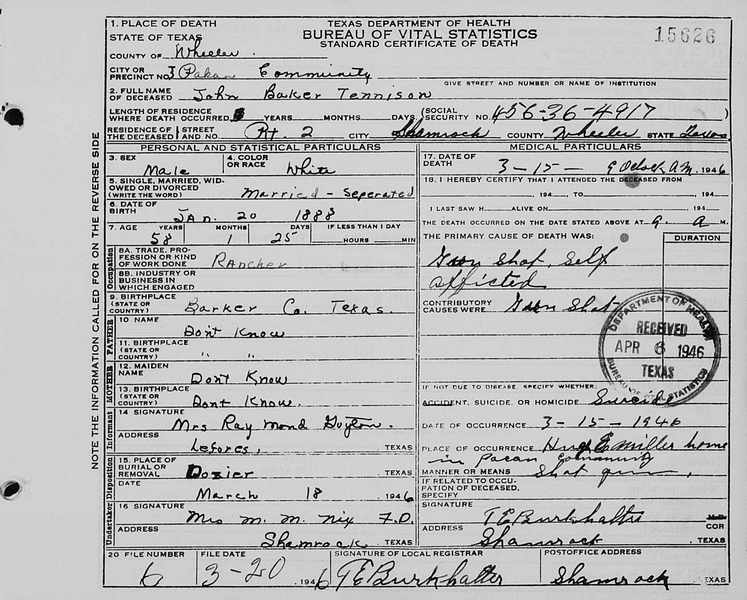 1. PLACE OF DEATH
TEXAS DEPARTMENT OF HEALTH
BUREAU OF VITAL STATISTICS
STANDARD CERTIFICATE OF DEATH
15626
STATE OF TEXAS
COUNTY OF Wheeler.
CITY OR PRECINCT NO. 3 Pakan Community
GIVE STREET AND NUMBER OR NAME OF INSTITUTION
2. FULL NAME OF DECEASED John Baker Tennison
LENGTH OF RESIDENCE WHERE DEATH OCCURRED YEARS MONTHS DAYS (SOCIAL SECURITY NO. 456-36-4917)
RESIDENCE OF THE DECEASED STREET AND NO. Rt. 2 CITY Shamrock COUNTY Wheeler STATE Texas
PERSONAL AND STATISTICAL PARTICULARS
MEDICAL PARTICULARS
3. SEX Male
4. COLOR OR RACE White
5. SINGLE, MARRIED, WIDOWED OR DIVORCED (WRITE THE WORD) Married - Seperated
6. DATE OF BIRTH Jan. 20 1888
7. AGE YEARS 58 MONTHS 1 DAYS 25 IF LESS THAN 1 DAY HOURS MIN
8A. TRADE, PROFESSION OR KIND OF WORK DONE Rancher
8B. INDUSTRY OR BUSINESS IN WHICH ENGAGED
9. BIRTHPLACE (STATE OR COUNTRY) Barker Co. Texas.
10 NAME Dont Know
11. BIRTHPLACE (STATE OR COUNTRY) " "
12. MAIDEN NAME Dont Know
13. BIRTHPLACE (STATE OR COUNTRY) Dont Know.
14 SIGNATURE Mrs Ray Mond Guyton.
ADDRESS Lefores, TEXAS
15. PLACE OF BURIAL OR REMOVAL Dozier TEXAS
DATE March 18 1946
16 SIGNATURE Mrs M. M. Nix F.D.
ADDRESS Shamrock TEXAS
Occupation
FATHER
MOTHER
Informant
Disposition
Undertaker
NOTE THE INFORMATION CALLED FOR ON THE REVERSE SIDE
17. DATE OF DEATH 3-15- 9 Oclock A.M. 1946
18. I HEREBY CERTIFY THAT I ATTENDED THE DECEASED FROM
194 TO 194
I LAST SAW H ALIVE ON 194
THE DEATH OCCURRED ON THE DATE STATED ABOVE AT 9. A M.
THE PRIMARY CAUSE OF DEATH WAS: DURATION
Gun Shot, Self
afficted
CONTRIBUTORY CAUSES WERE Gun Shot
DEPARTMENT OF HEALTH
RECEIVED
APR 6 1946
TEXAS
BUREAU OF VITAL STATISTICS
IF NOT DUE TO DISEASE, SPECIFY WHETHER:
ACCIDENT, SUICIDE, OR HOMICIDE Suicide
DATE OF OCCURRENCE 3-15-1946
PLACE OF OCCURRENCE Miller home
in Pacan Commanity
MANNER OR MEANS Shot gun,
IF RELATED TO OCCUPATION OF DECEASED, SPECIFY
SIGNATURE T E Burkhalter COR
ADDRESS Shamrock, TEXAS
20 FILE NUMBER 6
FILE DATE 3-20 1946
SIGNATURE OF LOCAL REGISTRAR T E Burkhalter
POSTOFFICE ADDRESS Shamrock, TEXAS